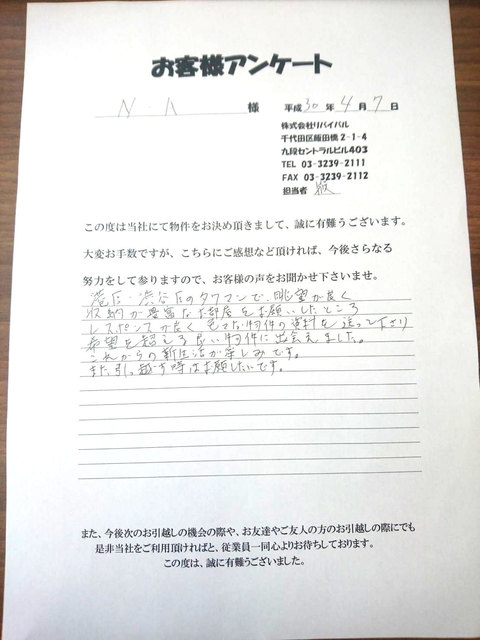 お客様アンケート
N・h 様 平成30年4月7日
株式会社リバイバル
千代田区飯田橋2-1-4
九段セントラルビル403
TEL 03-3239-2111
FAX 03-3239-2112
担当者
この度は当社にて物件をお決め頂きまして、誠に有難うございます。
大変お手数ですが、こちらにご感想など頂ければ、今後さらなる
努力をして参りますので、お客様の声をお聞かせ下さいませ。
港区・渋谷区のタワマンで、眺望が良く
収納が豊富なお部屋をお願いしたところ
レスポンスが良く 物件の資料を送って下さり
希望を超える良い物件に出会えました。
これからの新生活が楽しみです。
また引っ越す時はお願いしたいです。
また、今後次のお引越しの機会の際や、お友達やご友人の方のお引越しの際にでも
是非当社をご利用頂ければと、従業員一同心よりお待ちしております。
この度は、誠に有難うございました。